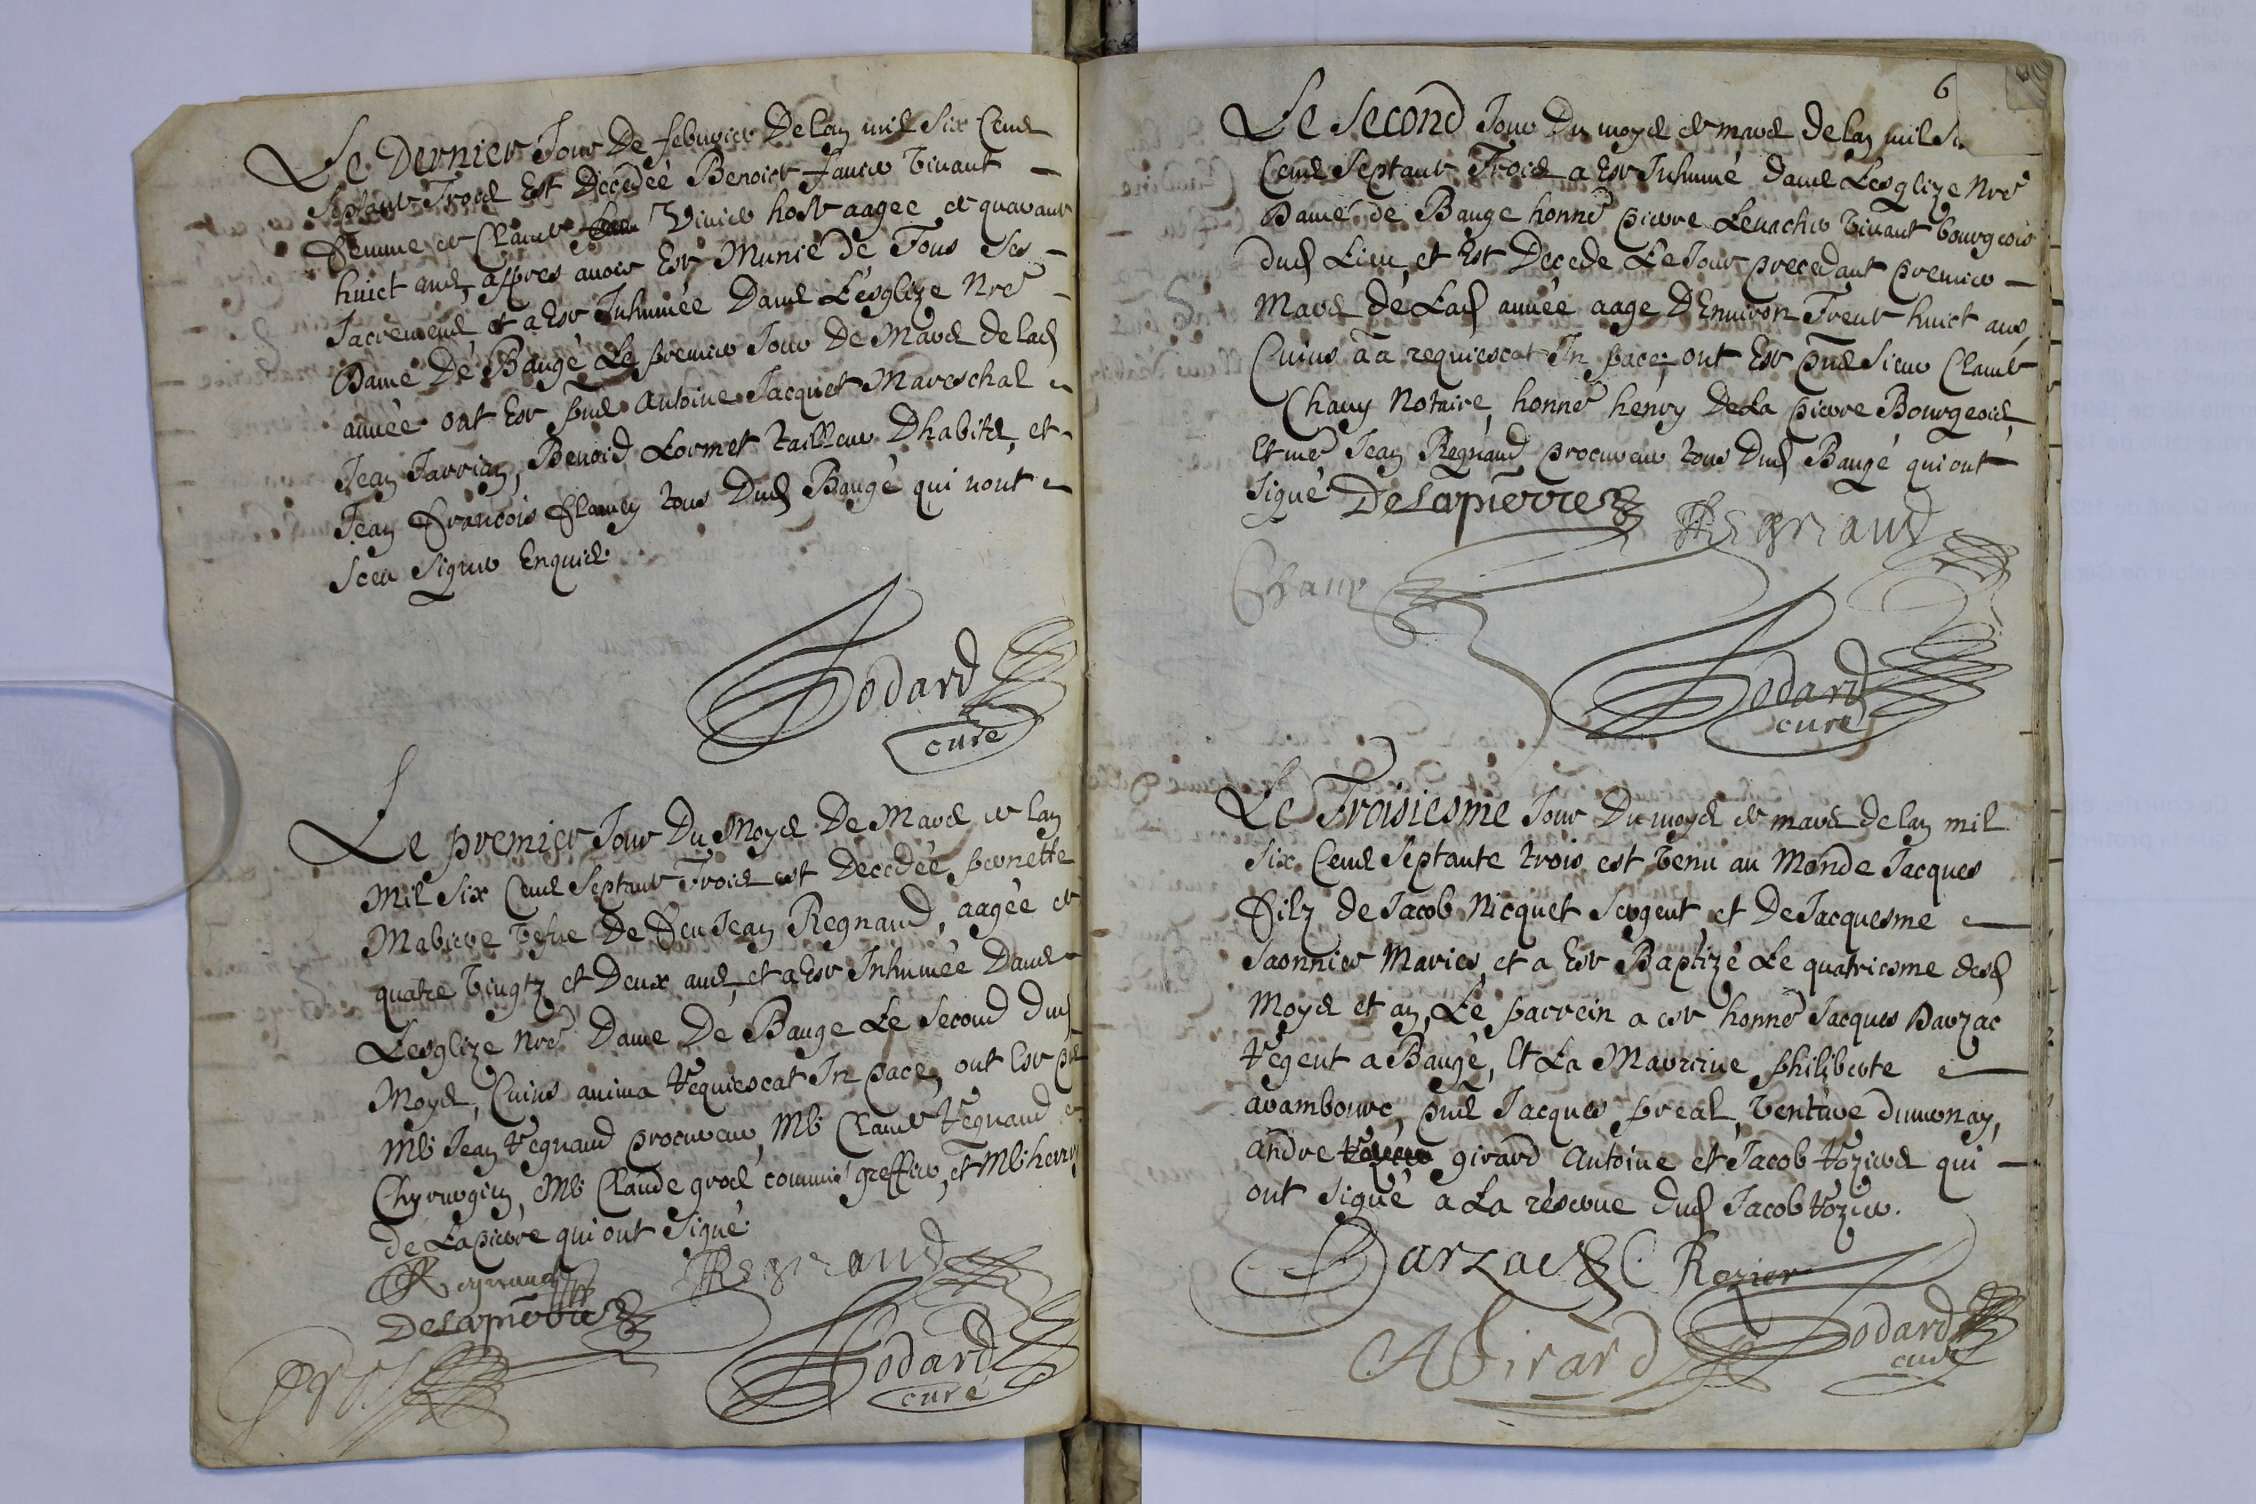 Le Dernier Jour De febvrier De lan mil Six Cens
Septante Trois Est Decedée Benoiste vivant
femme de Claude Vivier hoste aagee de quarante
huict ans, appres avoir Este Munie de Tous Ses
Sacremens, et a Este Inhumée Dans L'esglize Nre
Dame De Baugé Le premier Jour De Mars de lad
année ont Este pns Antoine Jacquet Mareschal
Jean Jarrin, Benoid Lormet tailleur Dhabits, et
Jean François tous Dud Baugé qui nont
Sceu Signer Enquis.
Godard
curé
Le premier Jour Du Moys De Mars de lan
Mil Six Cens Septante Trois est Decedée pernette
Mabiere vefve De feu Jean Regnaud, aagée de
quatre vingtz et Deux ans, et a Este Inhumée Dans
Lesglize Nre Dame De Bauge Le Second dud
Moys, Cuius anima requiescat In pace, ont Este pns
Me Jean Regnaud procureur, Me Claude Regnaud
Chyrurgien, Me Claude gros commis greffier, et Me henry
de Lapierre qui ont Signé.
Regnaud
Regnaud
Delapierre
Gros
Godard
curé
6
Le Second Jour Du moys de mars de lan mil Si
Cens Septante Trois a Este Inhumé dans Lesglize Nre
Dame de Bauge honne pierre Levachier vivant bourgeois
dud Lieu, et Est Decede Le Jour precedant premier
Mars de Lad année aage D'Environ Trente huict ans
Cuius aa requiescat In pace, ont Este pns Sieur Claude
Chany Notaire, honne henry De la pierre Bourgeois,
Et me Jean Regnaud procureur tous Dud Baugé qui ont
Signé Delapierre
Regnaud
Chany
Godard
curé
Le Troisiesme Jour Du moys de mars de lan mil
Six Cens Septante trois est venu au Monde Jacques
filz de Jacob Nicquet Sergent, et De Jacquesme
Saonnier Maries, et a Este Baptizé Le quatriesme desd
Moys et an, Le parrein a este honne Jacques Darzac
regent a Baugé, Et La Marrine philiberte
arambourc, pns Jacques preal, venture dumonay,
andre girard Antoine et Jacob roziers qui
ont Signé a La réserve dud Jacob rozier.
Darzac
Rozier
A Girard
Godard
curé